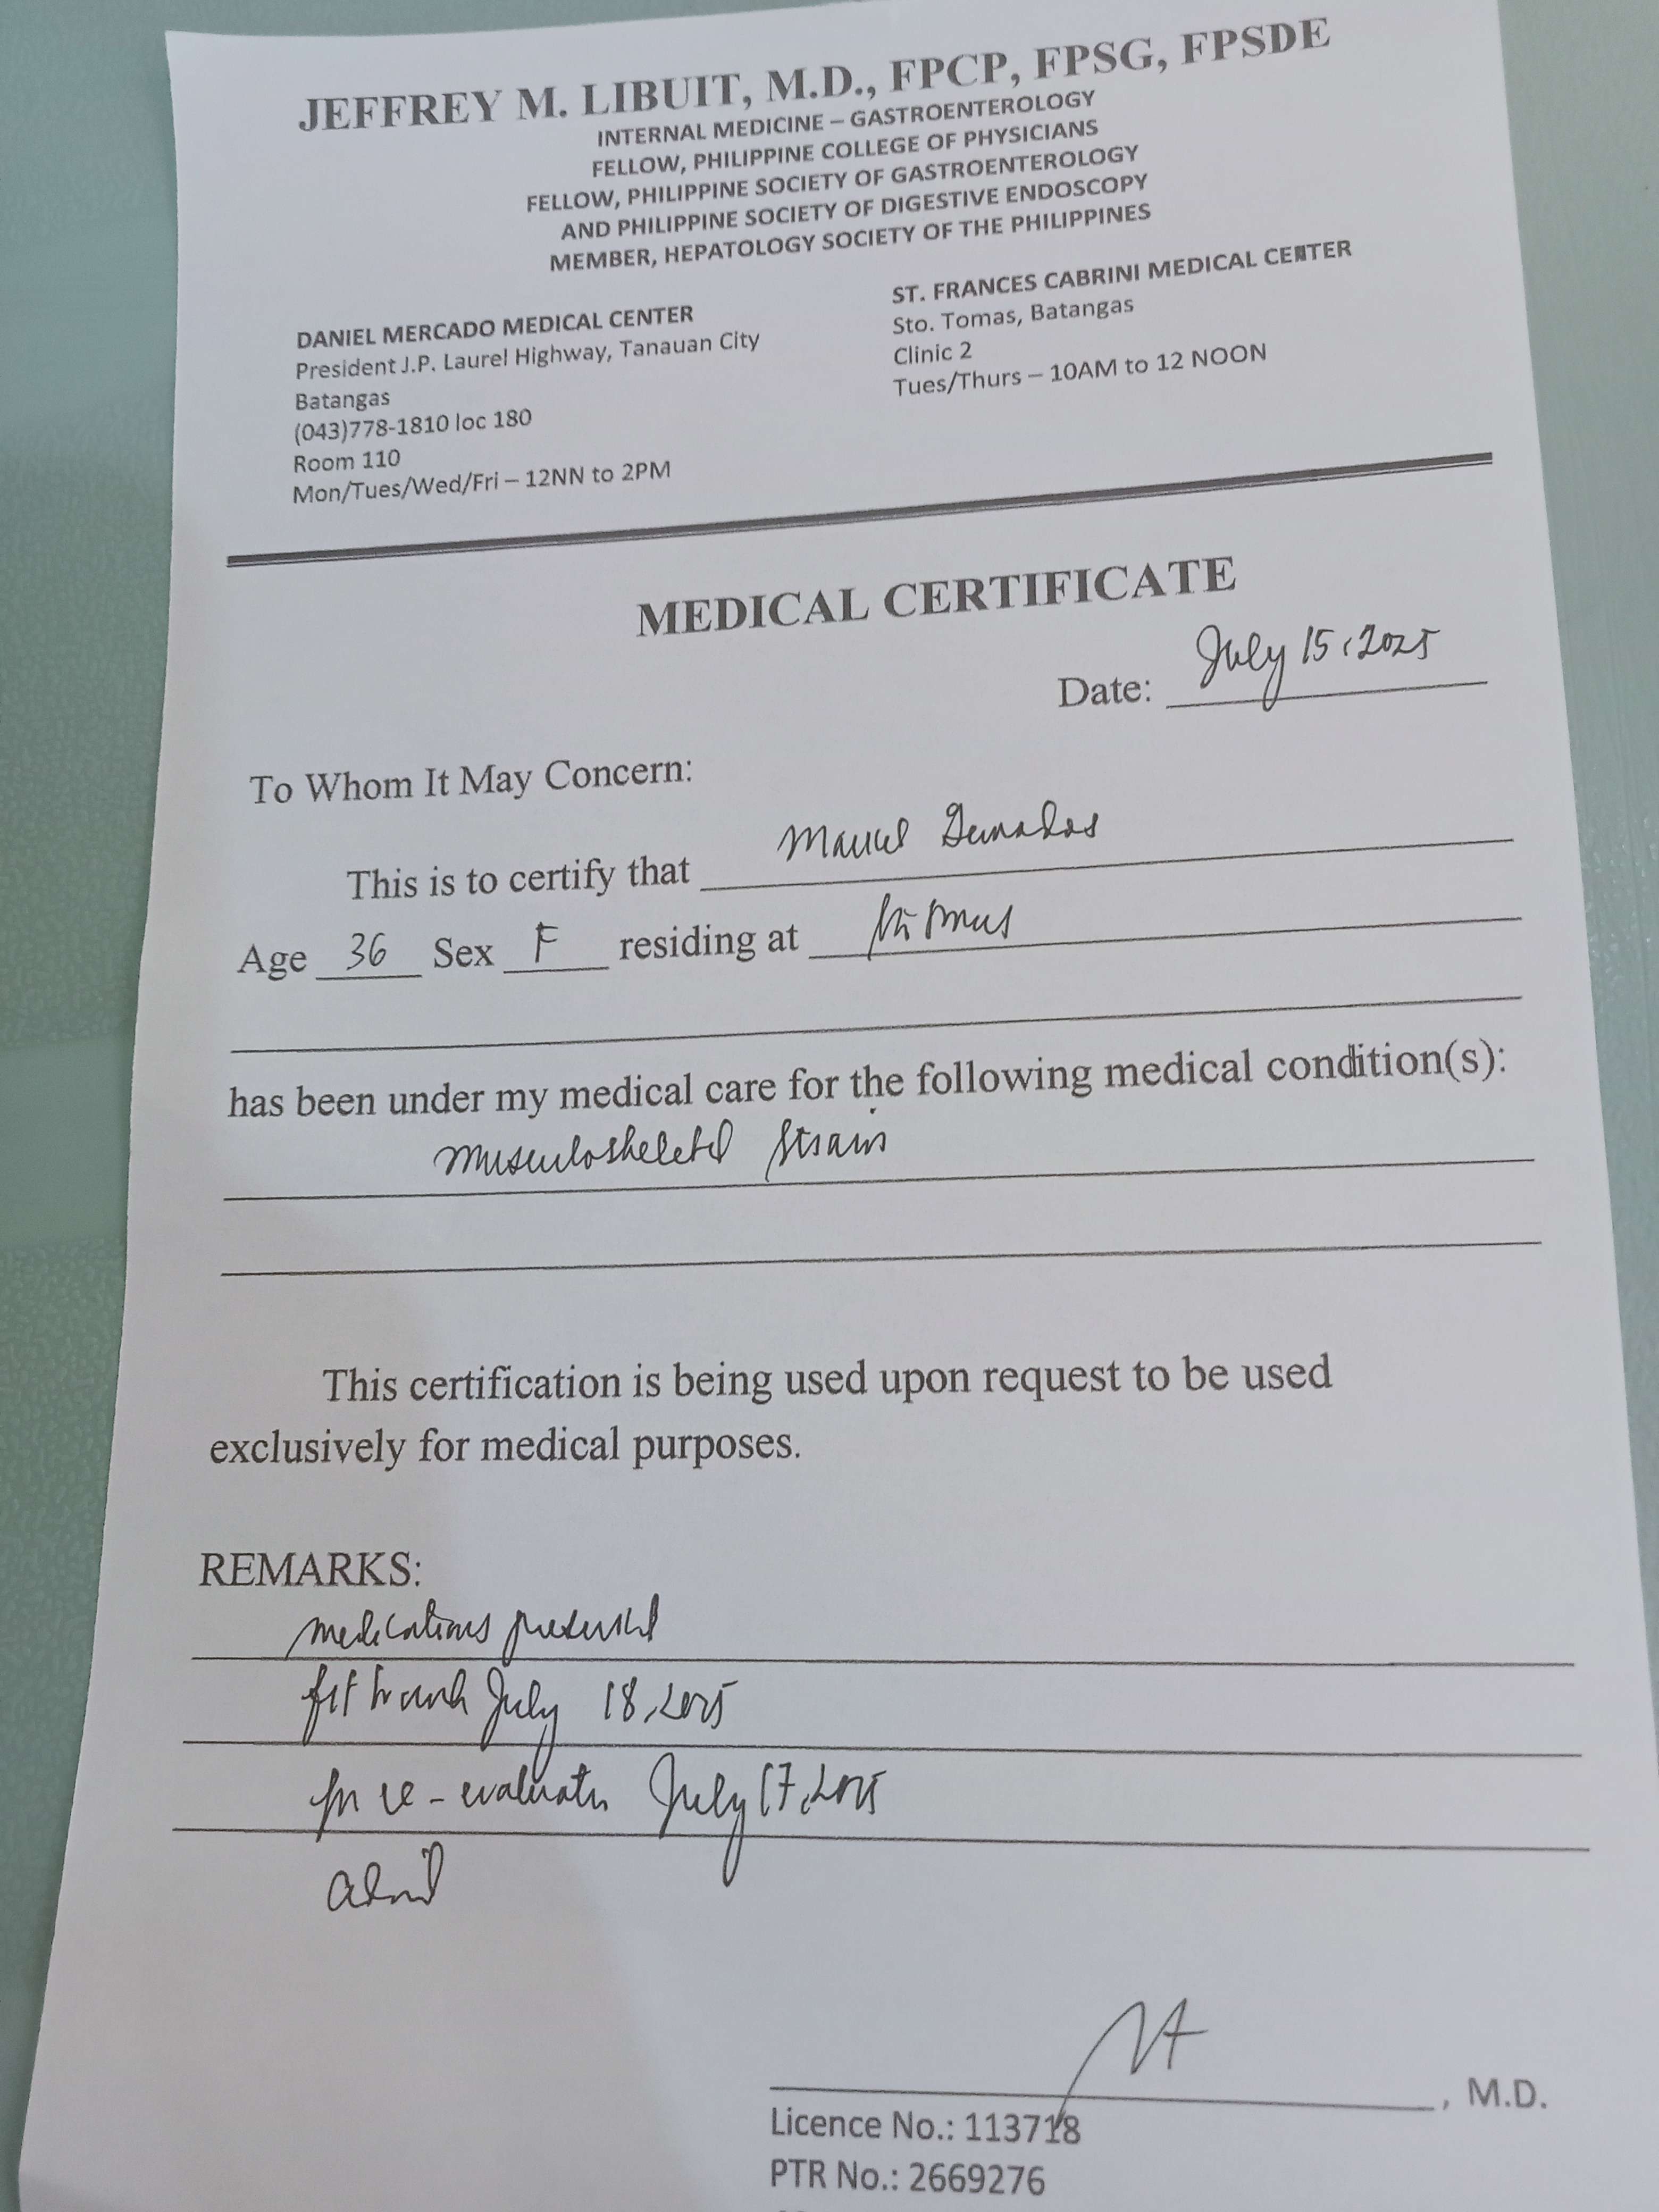 JEFFREY M. LIBUIT, M.D., FPCP, FPSG, FPSDE
INTERNAL MEDICINE – GASTROENTEROLOGY
FELLOW, PHILIPPINE COLLEGE OF PHYSICIANS
FELLOW, PHILIPPINE SOCIETY OF GASTROENTEROLOGY
AND PHILIPPINE SOCIETY OF DIGESTIVE ENDOSCOPY
MEMBER, HEPATOLOGY SOCIETY OF THE PHILIPPINES
DANIEL MERCADO MEDICAL CENTER
President J.P. Laurel Highway, Tanauan City
Batangas
(043)778-1810 loc 180
Room 110
Mon/Tues/Wed/Fri – 12NN to 2PM
ST. FRANCES CABRINI MEDICAL CENTER
Sto. Tomas, Batangas
Clinic 2
Tues/Thurs – 10AM to 12 NOON
MEDICAL CERTIFICATE
Date: July 15, 2025
To Whom It May Concern:
This is to certify that
Age 36 Sex F residing at
has been under my medical care for the following medical condition(s):
musculoskeletal strain
This certification is being used upon request to be used
exclusively for medical purposes.
REMARKS:
medications
July 18, 2025
re-evaluation July 17, 2025
, M.D.
Licence No.: 113718
PTR No.: 2669276